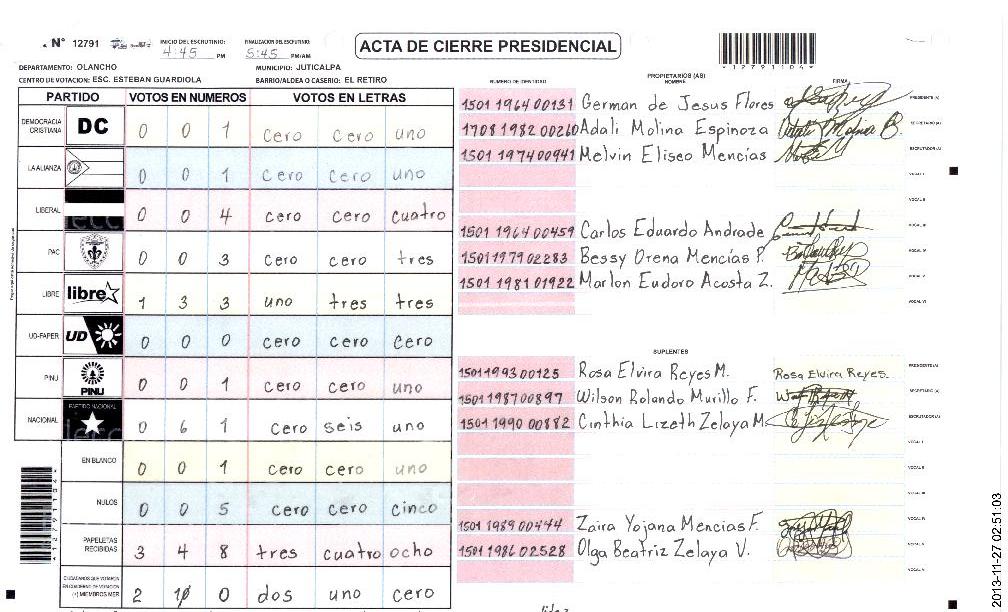 N° 12791
INICIO DEL ESCRUTINIO: 4:45 PM
FINALIZACION DEL ESCRUTINIO: 5:45 PM/AM
ACTA DE CIERRE PRESIDENCIAL
*12791104*
DEPARTAMENTO: OLANCHO MUNICIPIO: JUTICALPA
CENTRO DE VOTACION: ESC. ESTEBAN GUARDIOLA BARRIO/ALDEA O CASERIO: EL RETIRO
PARTIDO VOTOS EN NUMEROS VOTOS EN LETRAS
DEMOCRACIA CRISTIANA DC 0 0 1 cero cero uno
LA ALIANZA 0 0 1 cero cero uno
LIBERAL 0 0 4 cero cero cuatro
PAC 0 0 3 cero cero tres
LIBRE libre 1 3 3 uno tres tres
UD-FAPER UD 0 0 0 cero cero cero
PINU PINU 0 0 1 cero cero uno
NACIONAL PARTIDO NACIONAL 0 6 1 cero seis uno
EN BLANCO 0 0 1 cero cero uno
NULOS 0 0 5 cero cero cinco
PAPELETAS RECIBIDAS 3 4 8 tres cuatro ocho
CIUDADANOS QUE VOTARON EN CUADERNO DE VOTACION (+) MIEMBROS MER 2 1 0 dos uno cero
NUMERO DE IDENTIDAD PROPIETARIOS (AS) NOMBRE FIRMA
1501 1964 00131 German de Jesus Flores PRESIDENTE (A)
1708 1982 00260 Adali Molina Espinoza SECRETARIO (A)
1501 1974 00941 Melvin Eliseo Mencías ESCRUTADOR (A)
VOCAL I
VOCAL II
1501 1964 00459 Carlos Eduardo Andrade VOCAL III
1501 1979 02283 Bessy Orena Mencías P. VOCAL IV
1501 1981 01922 Marlon Eudoro Acosta Z. VOCAL V
VOCAL VI
SUPLENTES
1501 1993 00125 Rosa Elvira Reyes M. Rosa Elvira Reyes. PRESIDENTE (A)
1501 1987 00897 Wilson Rolando Murillo F. SECRETARIO (A)
1501 1990 00882 Cinthia Lizeth Zelaya M ESCRUTADOR (A)
VOCAL I
VOCAL II
VOCAL III
1501 1989 00444 Zaira Yojana Mencias F. VOCAL IV
1501 1986 02528 Olga Beatriz Zelaya V. VOCAL V
VOCAL VI
*12791104*
2013-11-27 02:51:03